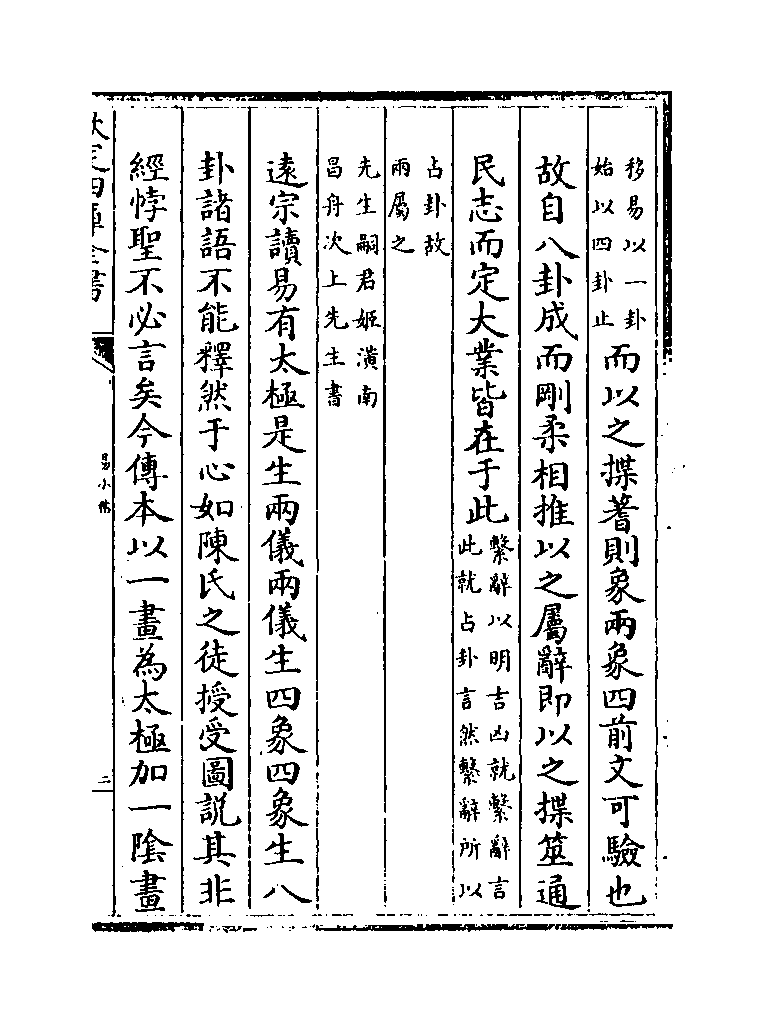 移易以一卦
始以四卦止而以之揲蓍則象兩象四前文可驗也
故自八卦成而剛柔相推以之屬辭即以之揲筮通
民志而定大業皆在于此繫辭以明吉凶就繫辭言
此就占卦言然繫辭所以
占卦故
兩屬之
先生嗣君姬潢南
昌舟次上先生書
遠宗讀易有太極是生兩儀兩儀生四象四象生八
卦諸語不能釋然于心如陳氏之徒授受圖説其非
經悖聖不必言矣今傳本以一畫為太極加一陰畫
欽定四庫全書
易小帖
二